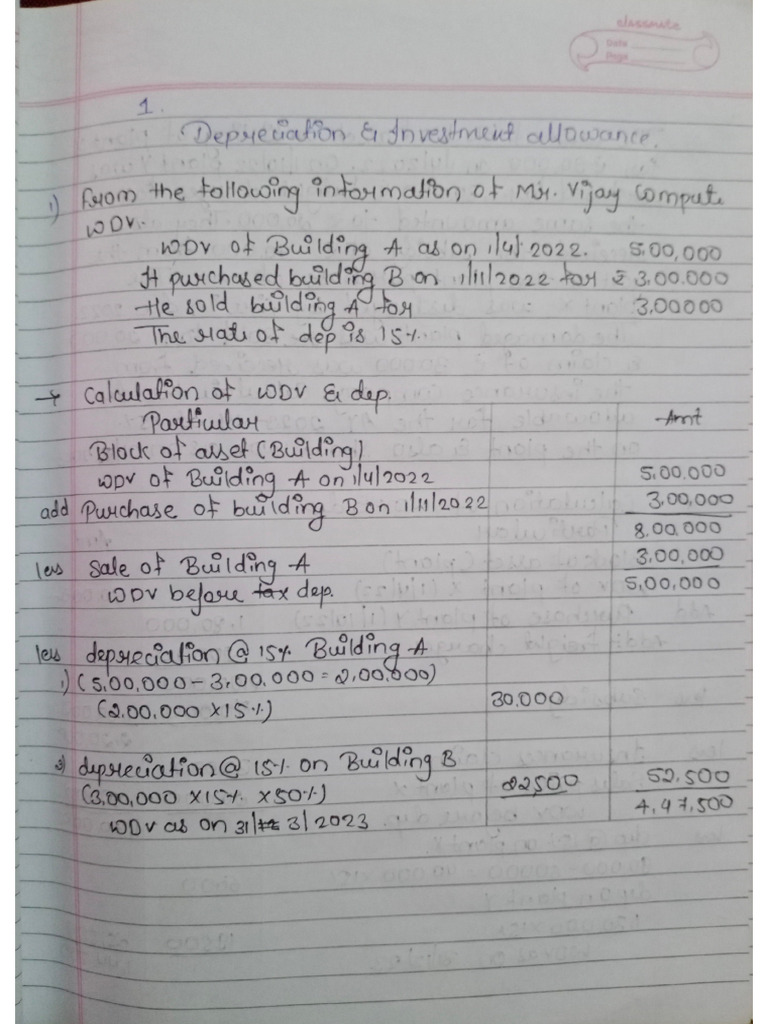 classmate
Date
Page
1.
Depreciation & Investment allowance.
1) From the following information of Mr. Vijay Compute
WDV.
WDV of Building A as on 1/4/2022. 5,00,000
It purchased building B on 1/11/2022 for ₹ 3,00.000
He sold building A for 3,00000
The rate of dep is 15%.
→ Calculation of WDV & dep.
Particular Amt
Block of asset (Building)
WDV of Building A on 1/4/2022 5,00,000
add Purchase of building B on 1/11/2022 3,00,000
8,00.000
less Sale of Building A 3,00,000
WDV before dep. 5,00,000
less depreciation @ 15% Building A
1) (5,00,000 - 3,00,000 = 2,00,000)
(2,00,000 x 15%) 30,000
2) depreciation @ 15% on Building B
(3,00,000 x 15% x 50%) 22500 52,500
WDV as on 31/3/2023 4,47,500